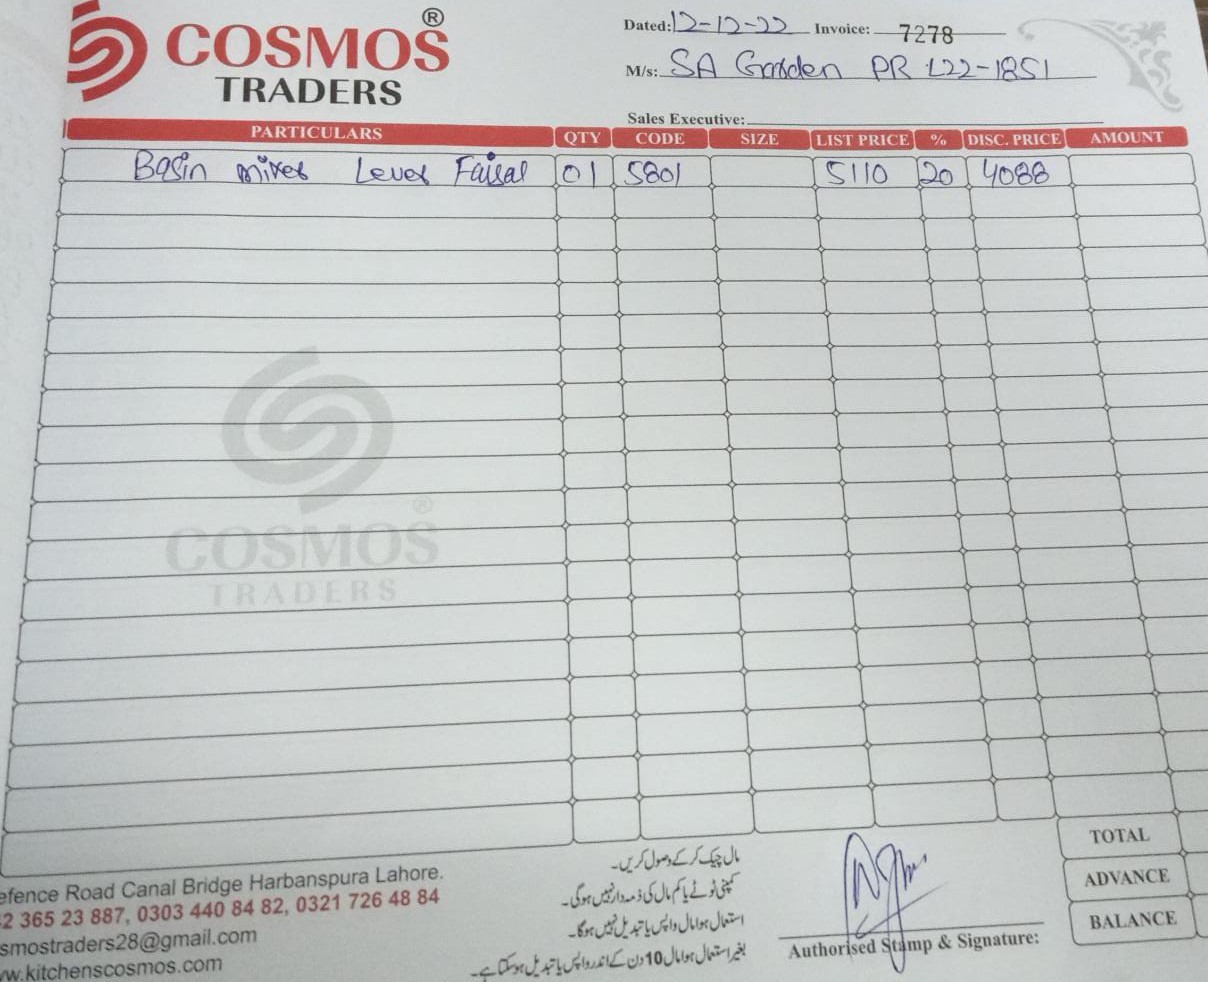 COSMOS ®
TRADERS
Dated: 12-12-22 Invoice: 7278
M/s: SA Garden PR L22-1851
Sales Executive:
PARTICULARS QTY CODE SIZE LIST PRICE % DISC. PRICE AMOUNT
Basin mixer Lever Faisal 01 5801 5110 20 4088
®
COSMOS
TRADERS
TOTAL
ADVANCE
BALANCE
efence Road Canal Bridge Harbanspura Lahore.
2 365 23 887, 0303 440 84 82, 0321 726 48 84
smostraders28@gmail.com
w.kitchenscosmos.com
مال چیک کر کے وصول کریں۔
کمپنی ٹوٹے یا کم مال کی ذمہ دار نہیں ہوگی۔
استعمال ہوا مال واپس یا تبدیل نہیں ہوگا۔
بغیر استعمال ہوا مال 10 دن کے اندر واپس یا تبدیل ہوسکتا ہے۔
Authorised Stamp & Signature: